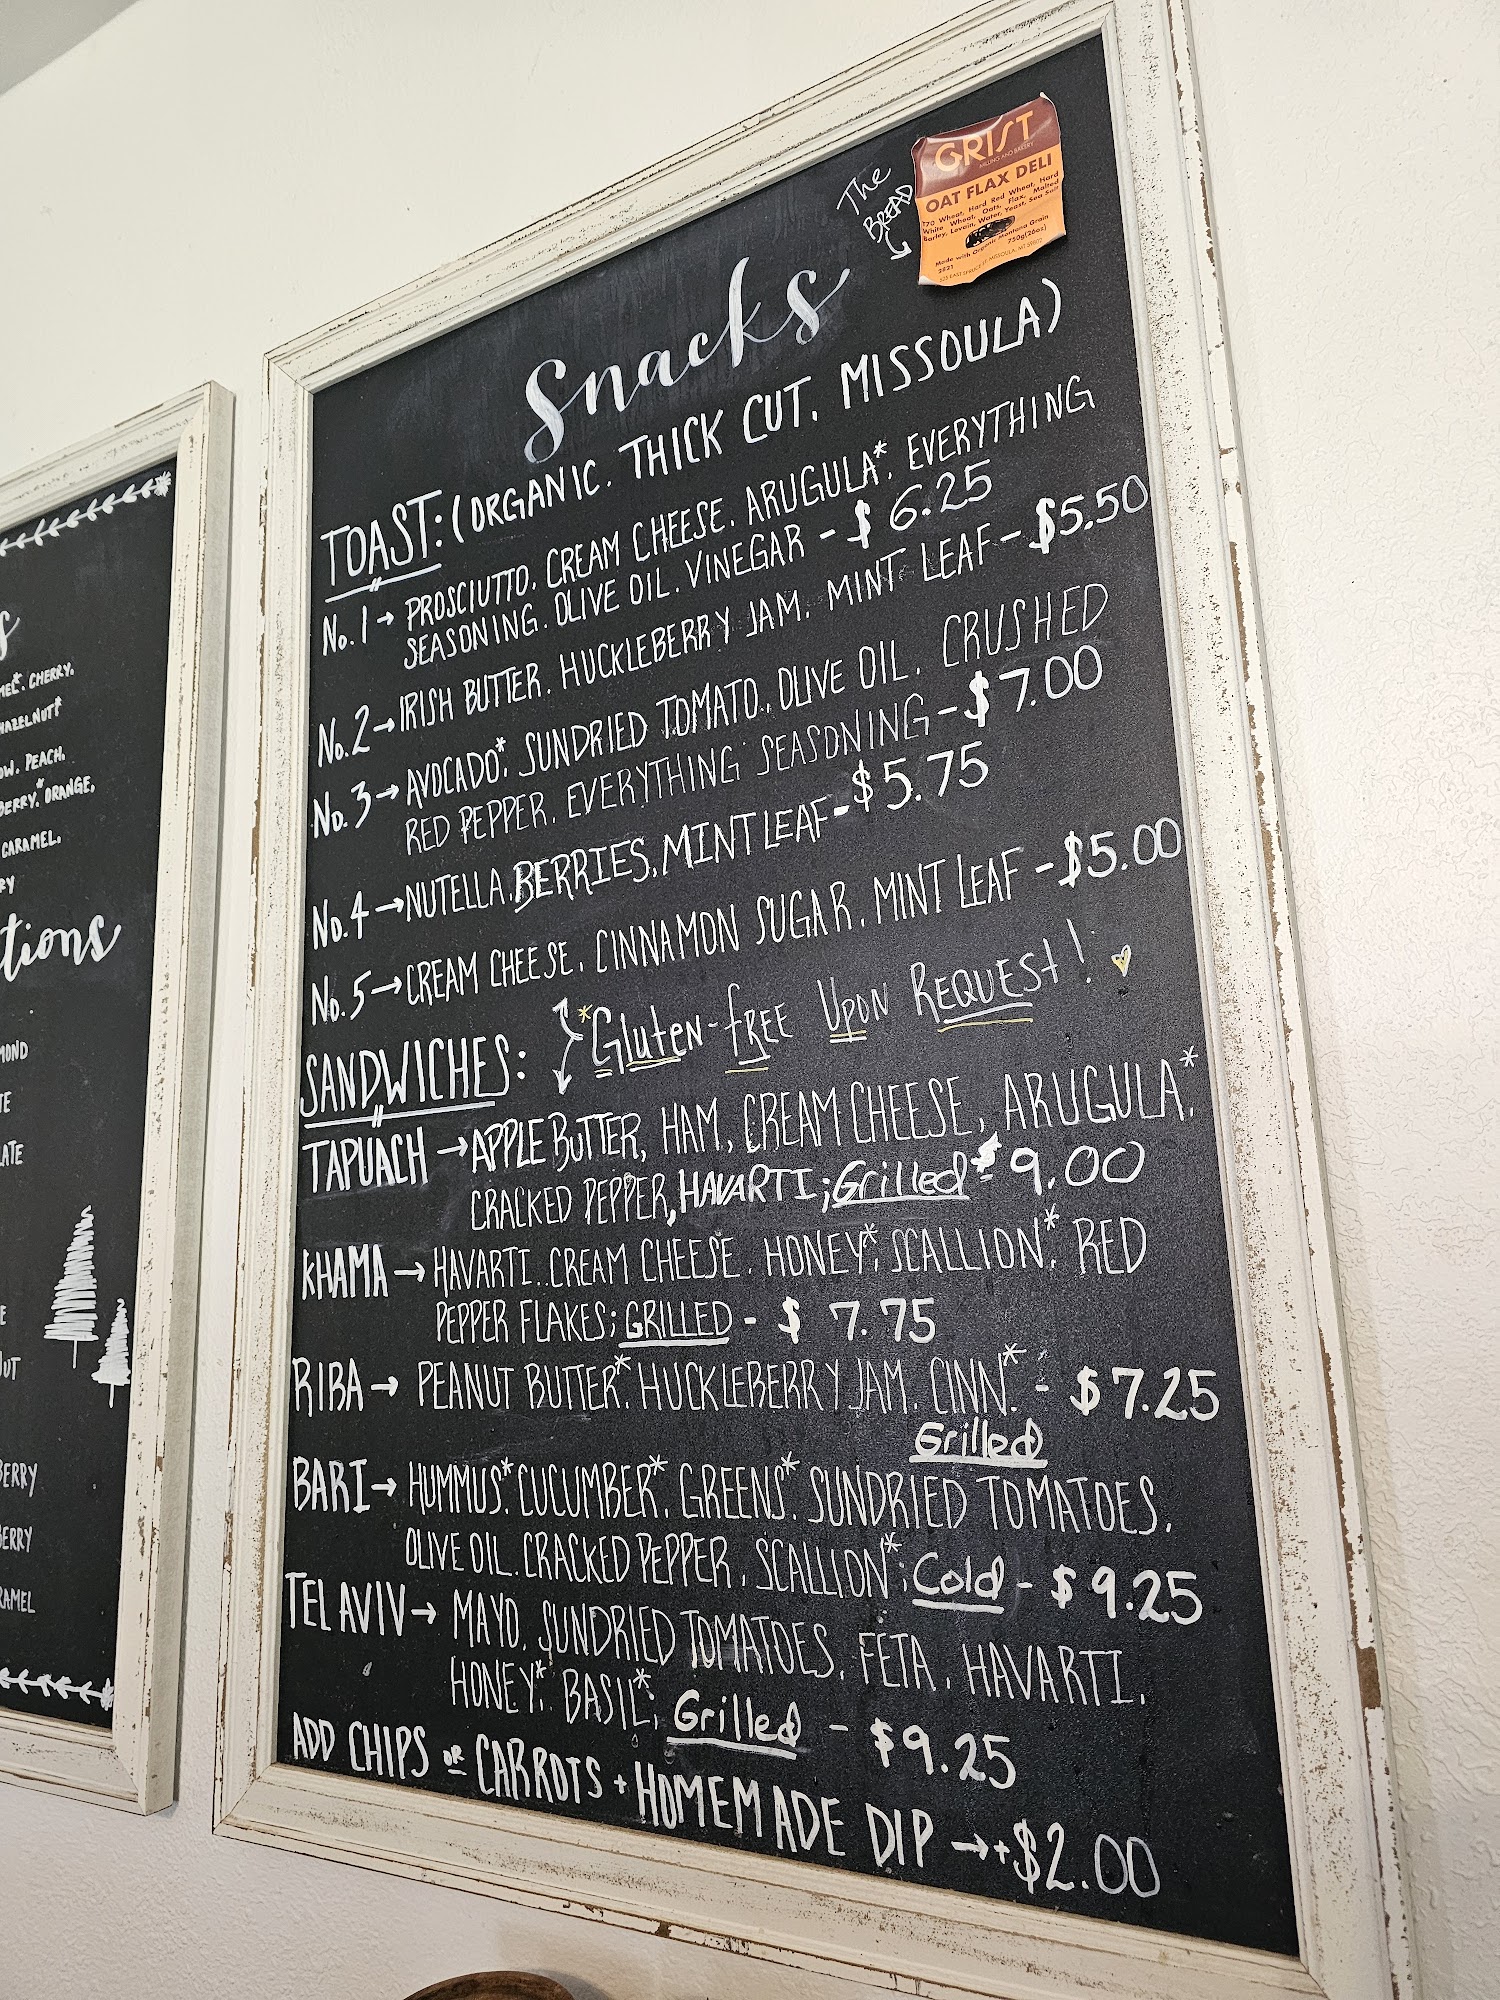 S
MEL*. CHERRY.
HAZELNUT*
OW. PEACH.
BERRY*. ORANGE.
CARAMEL.
RY
tions
MOND
TE
LATE
E
UT
BERRY
BERRY
RAMEL
The
BREAD
GRIST
MILLING AND BAKERY
OAT FLAX DELI
T70 Wheat, Hard Red Wheat, Hard
White Wheat, Oats, Flax, Malted
Barley, Levain, Water, Yeast, Sea Salt
750g(26oz)
Made with Organic Montana Grain
2821
525 EAST SPRUCE ST. MISSOULA, MT 59802
Snacks
TOAST: (ORGANIC. THICK CUT. MISSOULA)
No. 1 → PROSCIUTTO. CREAM CHEESE. ARUGULA*. EVERYTHING
SEASONING. OLIVE OIL. VINEGAR - $ 6.25
No. 2 → IRISH BUTTER. HUCKLEBERRY JAM. MINT LEAF - $5.50
No. 3 → AVOCADO*. SUNDRIED TOMATO. OLIVE OIL. CRUSHED
RED PEPPER. EVERYTHING SEASONING - $7.00
No. 4 → NUTELLA. BERRIES. MINT LEAF - $5.75
No. 5 → CREAM CHEESE. CINNAMON SUGAR. MINT LEAF - $5.00
SANDWICHES: *Gluten-free Upon Request!
TAPUACH → APPLE BUTTER, HAM, CREAM CHEESE, ARUGULA*.
CRACKED PEPPER, HAVARTI; Grilled - $9.00
KHAMA → HAVARTI. CREAM CHEESE. HONEY*. SCALLION*. RED
PEPPER FLAKES; GRILLED - $ 7.75
RIBA → PEANUT BUTTER*. HUCKLEBERRY JAM. CINN.* - $7.25
Grilled
BARI → HUMMUS*. CUCUMBER*. GREENS*. SUNDRIED TOMATOES.
OLIVE OIL. CRACKED PEPPER. SCALLION*; Cold - $9.25
TEL AVIV → MAYO. SUNDRIED TOMATOES. FETA. HAVARTI.
HONEY*. BASIL*; Grilled - $9.25
ADD CHIPS OR CARROTS + HOMEMADE DIP → +$2.00